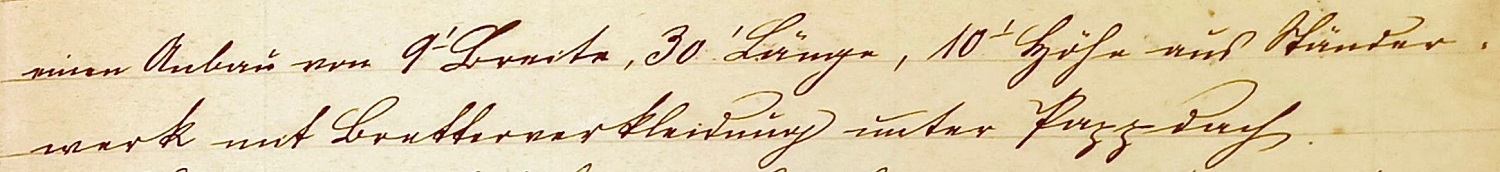 einen Anbau von 9' Breite, 30' Länge, 10' Höhe aus Ständer-
werk mit Bretterverkleidung unter Pappdach.